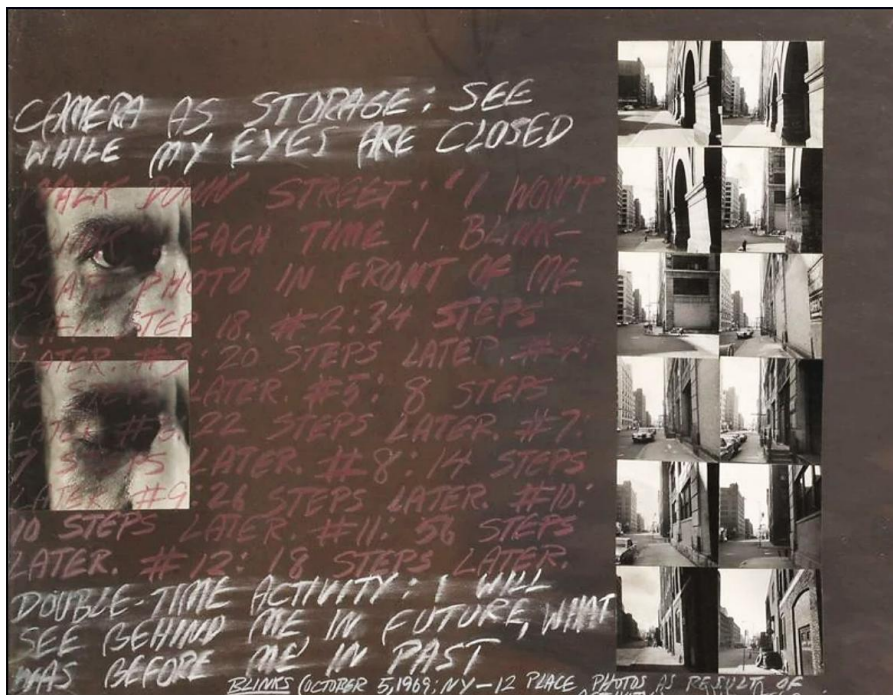 CAMERA AS STORAGE: SEE
WHILE MY EYES ARE CLOSED
WALK DOWN STREET: "I WON'T
BLINK" EACH TIME I BLINK-
SNAP PHOTO IN FRONT OF ME
STEP 18. #2: 34 STEPS
LATER. #3: 20 STEPS LATER. #4:
LATER. #5: 8 STEPS
LATER #6: 22 STEPS LATER. #7:
7 STEPS LATER. #8: 14 STEPS
LATER #9: 26 STEPS LATER. #10:
10 STEPS LATER. #11: 56 STEPS
LATER. #12: 18 STEPS LATER.
DOUBLE-TIME ACTIVITY: I WILL
SEE BEHIND ME IN FUTURE, WHAT
WAS BEFORE ME IN PAST
BLINKS (OCTOBER 5, 1969; NY - 12 PLACE PHOTOS AS RESULTS OF